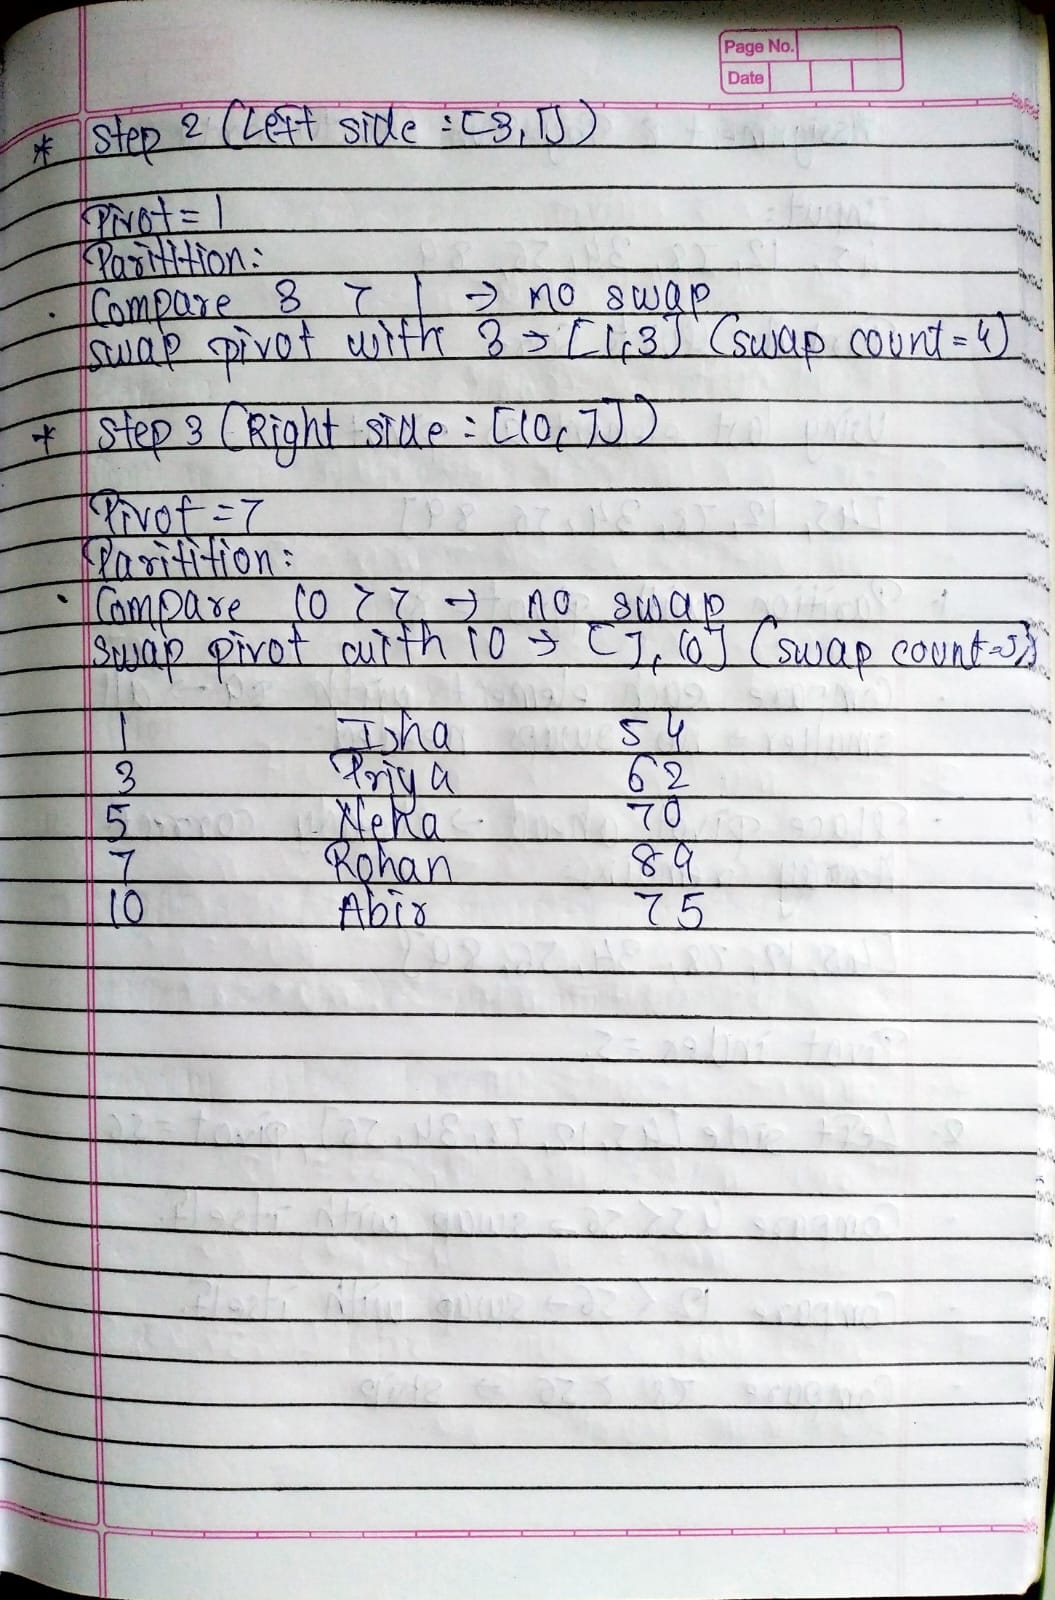 Page No.
Date
* Step 2 (Left side : [3, 1])
Pivot = 1
Paritition:
. Compare 3 > 1 → no swap
swap pivot with 3 → [1, 3] (swap count = 4)
* Step 3 (Right side : [10, 7])
Pivot = 7
Paritition:
. Compare 10 > 7 → no swap
swap pivot with 10 → [7, 10] (swap count = 5)
1 Isha 54
3 Priya 62
5 Neha 70
7 Rohan 89
10 Abir 75